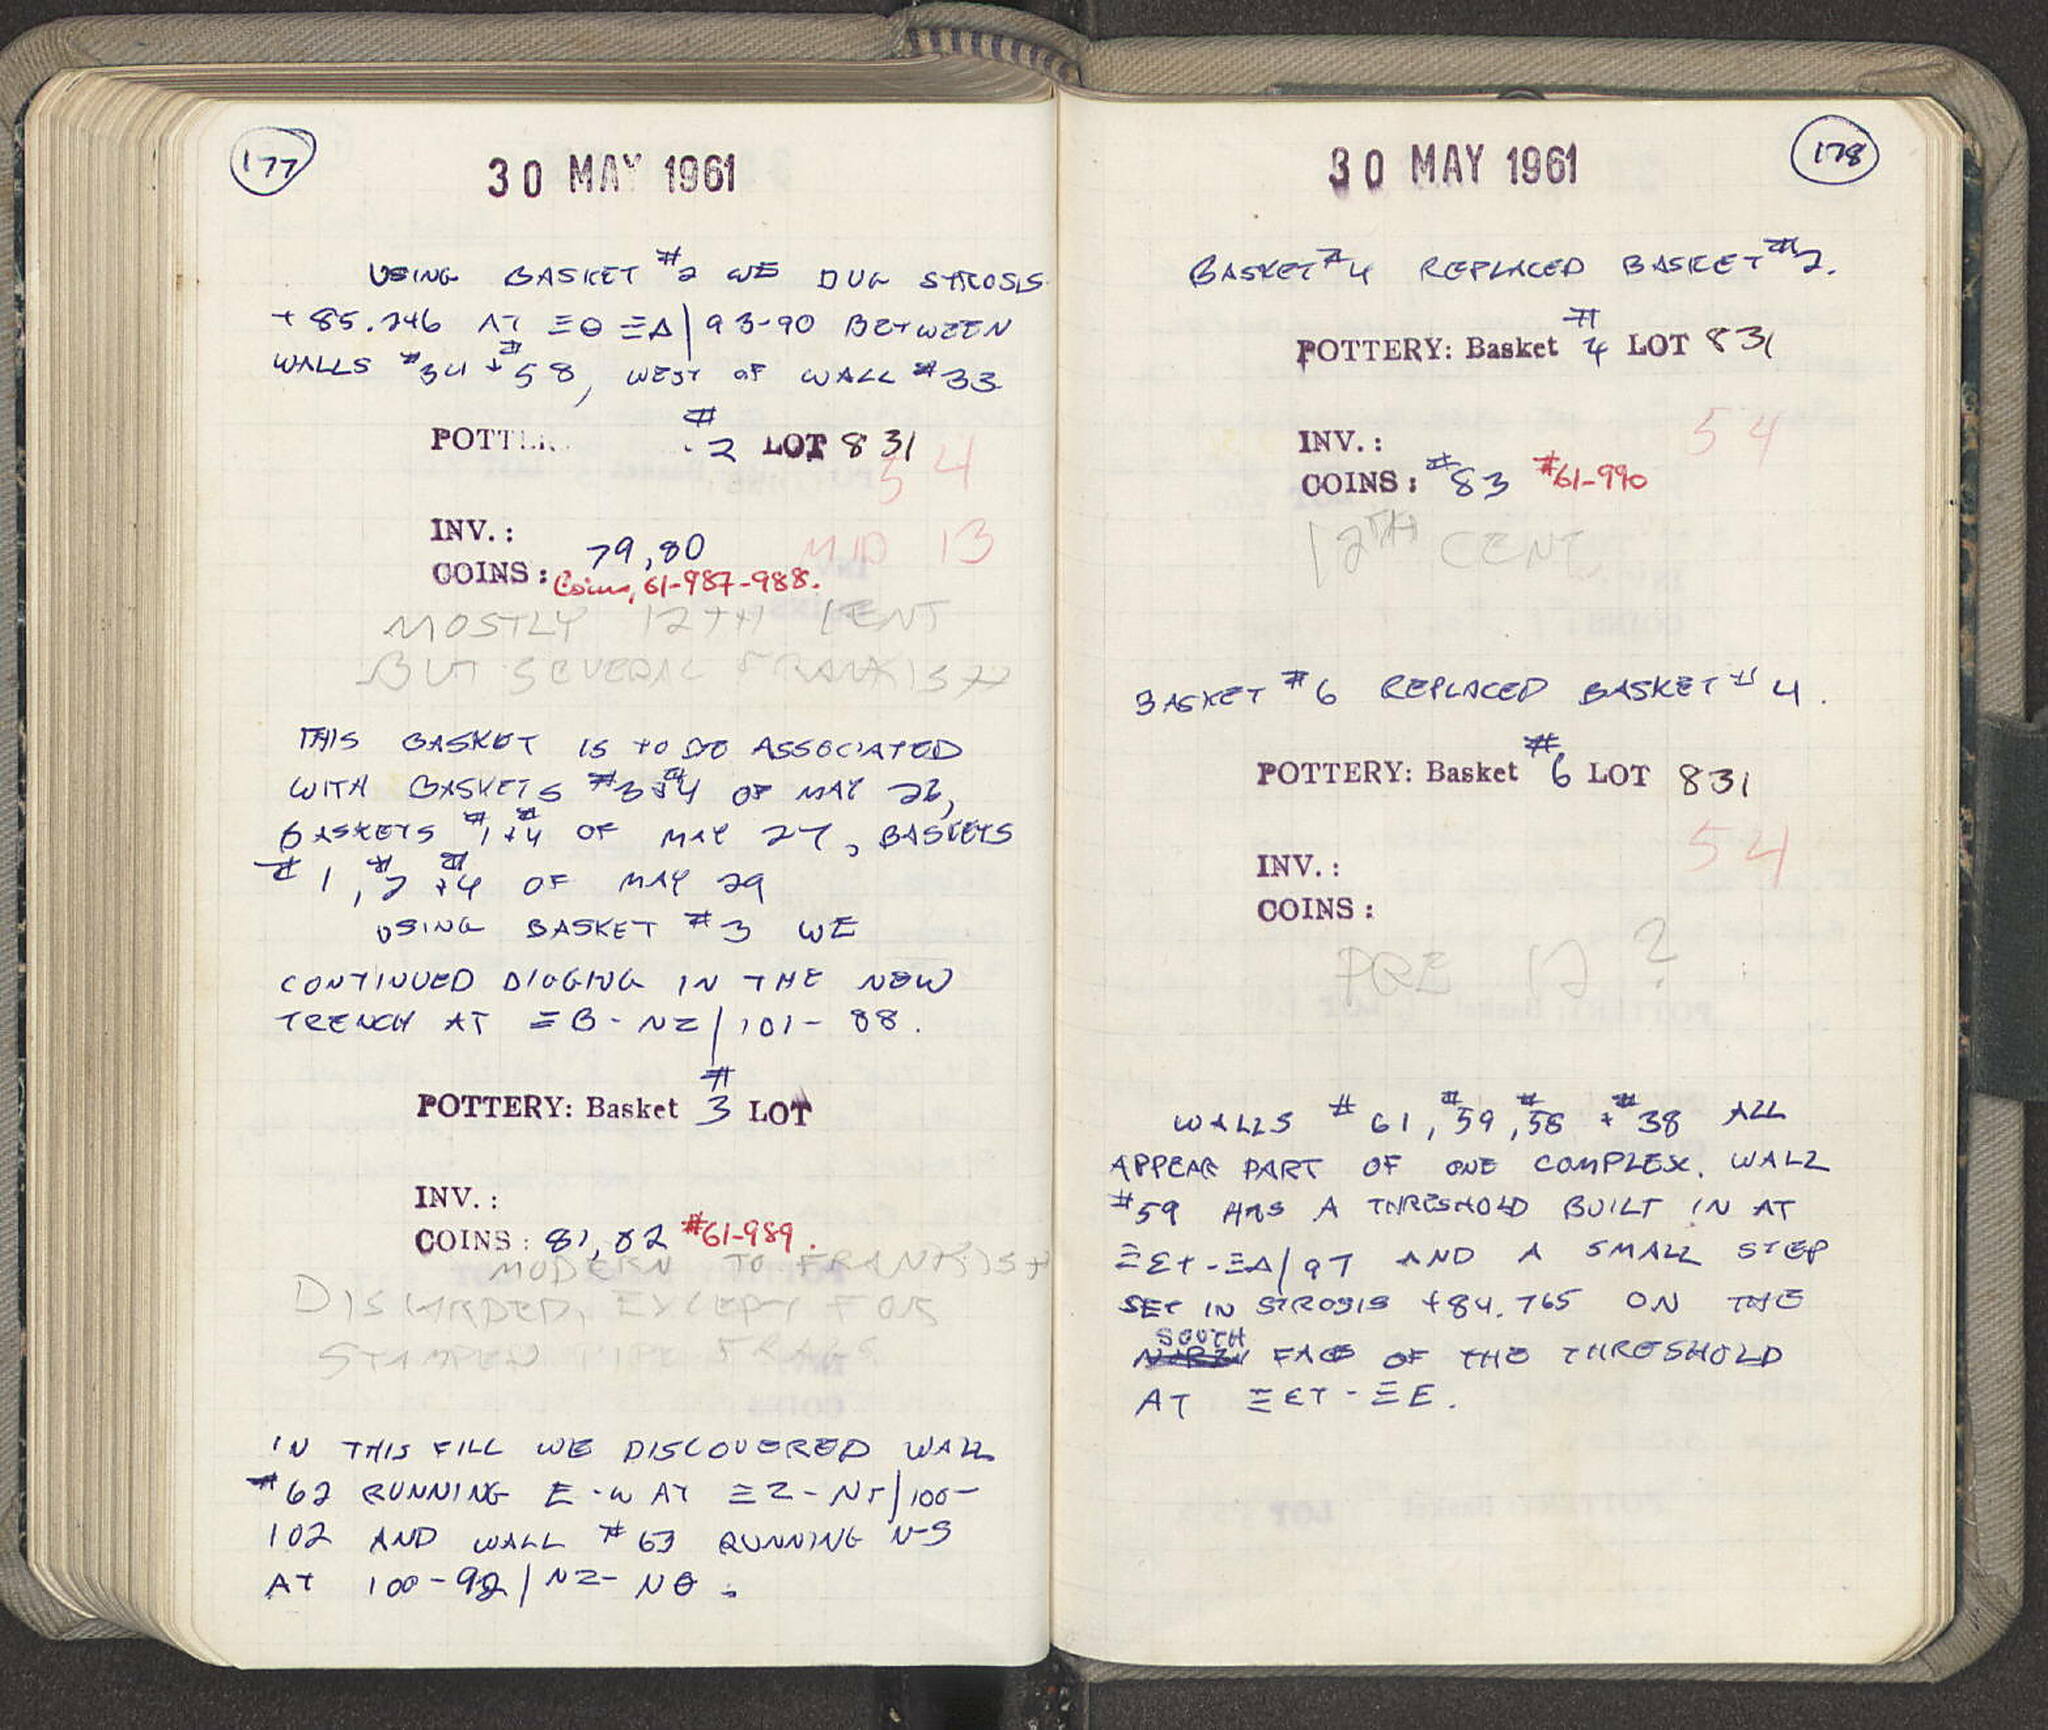 177
30 MAY 1961
USING BASKET #2 WE DUG STROSIS
+85.246 AT ΞΘ ΞΔ/93-90 BETWEEN
WALLS #34 + #58, WEST OF WALL #33
POTTE #2 LOT 831
54
INV.:
MID 13
79,80
COINS: Coins, 61-987-988.
MOSTLY 12TH CENT
BUT SEVERAL FRANKISH
THIS BASKET IS TO BE ASSOCIATED
WITH BASKETS #3+#4 OF MAY 26,
BASKETS #1+#4 OF MAY 27, BASKETS
#1, #2 +#4 OF MAY 29
USING BASKET #3 WE
CONTINUED DIGGING IN THE NEW
TRENCH AT ΞB-NZ/101-88.
POTTERY: Basket #3 LOT
INV.:
COINS: 81, 82 #61-989.
MODERN TO FRANKISH
DISCARDED, EXCEPT FOR
STAMPED PIPE FRAGS
IN THIS FILL WE DISCOVERED WALL
#62 RUNNING E-W AT ΞZ-NT/100-
102 AND WALL #63 RUNNING N-S
AT 100-92/NZ-NΘ.
178
30 MAY 1961
BASKET #4 REPLACED BASKET #2.
POTTERY: Basket #4 LOT 831
54
INV.:
COINS: #83 #61-990
12TH CENT
BASKET #6 REPLACED BASKET #4.
POTTERY: Basket #6 LOT 831
54
INV.:
COINS:
PRE 12?
WALLS #61, #59, #58 + #38 ALL
APPEAR PART OF ONE COMPLEX. WALL
#59 HAS A THRESHOLD BUILT IN AT
ΞΕΤ-ΞΔ/97 AND A SMALL STEP
SET IN STROSIS +84.765 ON THE
SOUTH
FACE OF THE THRESHOLD
AT ΞΕΤ-ΞΕ.